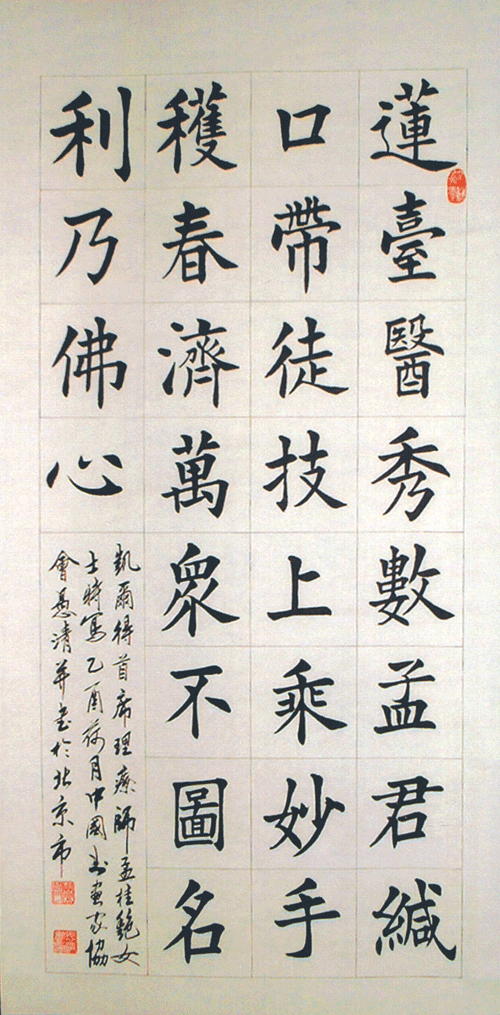 蓮臺醫秀數孟君緘
口帶徒技上乘妙手
穫春濟萬眾不圖名
利乃佛心
凱爾得首席理療師孟桂艷女
士特寫乙酉荷月中國书畫家協
會愚清并书於北京市